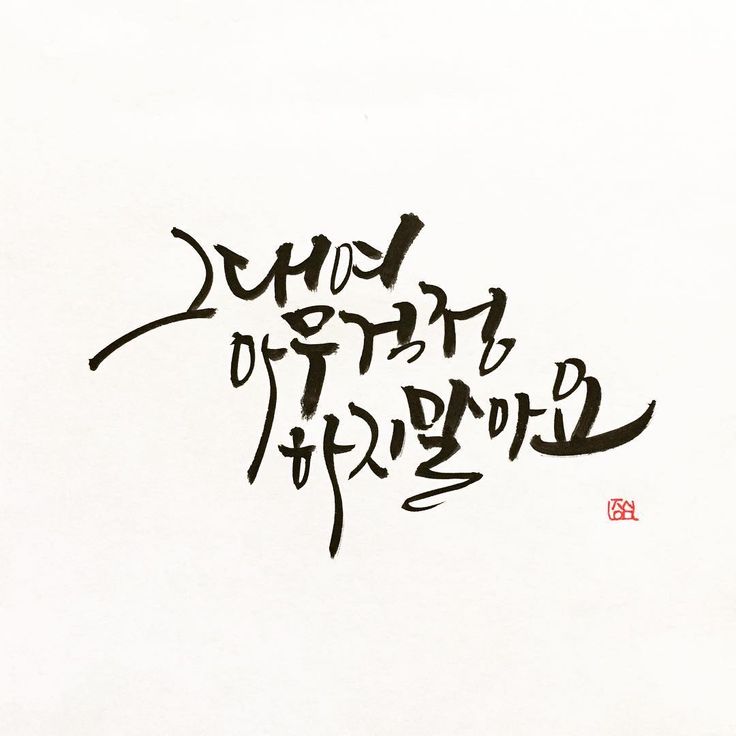 그대여
아무걱정
하지말아요